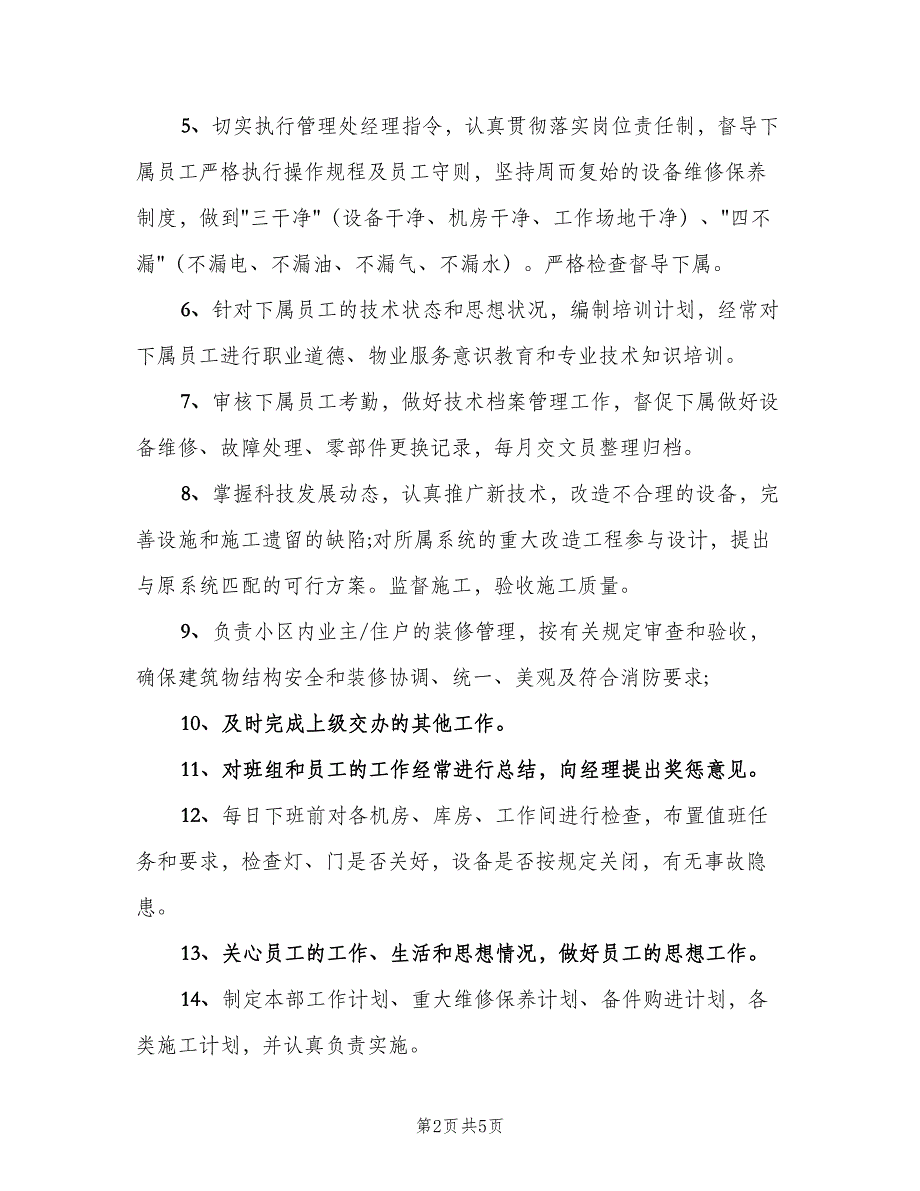 5、切实执行管理处经理指令，认真贯彻落实岗位责任制，督导下
属员工严格执行操作规程及员工守则，坚持周而复始的设备维修保养
制度，做到"三干净"（设备干净、机房干净、工作场地干净）、"四不
漏"（不漏电、不漏油、不漏气、不漏水）。严格检查督导下属。
6、针对下属员工的技术状态和思想状况，编制培训计划，经常对
下属员工进行职业道德、物业服务意识教育和专业技术知识培训。
7、审核下属员工考勤，做好技术档案管理工作，督促下属做好设
备维修、故障处理、零部件更换记录，每月交文员整理归档。
8、掌握科技发展动态，认真推广新技术，改造不合理的设备，完
善设施和施工遗留的缺陷;对所属系统的重大改造工程参与设计，提出
与原系统匹配的可行方案。监督施工，验收施工质量。
9、负责小区内业主/住户的装修管理，按有关规定审查和验收，
确保建筑物结构安全和装修协调、统一、美观及符合消防要求;
10、及时完成上级交办的其他工作。
11、对班组和员工的工作经常进行总结，向经理提出奖惩意见。
12、每日下班前对各机房、库房、工作间进行检查，布置值班任
务和要求，检查灯、门是否关好，设备是否按规定关闭，有无事故隐
患。
13、关心员工的工作、生活和思想情况，做好员工的思想工作。
14、制定本部工作计划、重大维修保养计划、备件购进计划，各
类施工计划，并认真负责实施。
第2页共5页